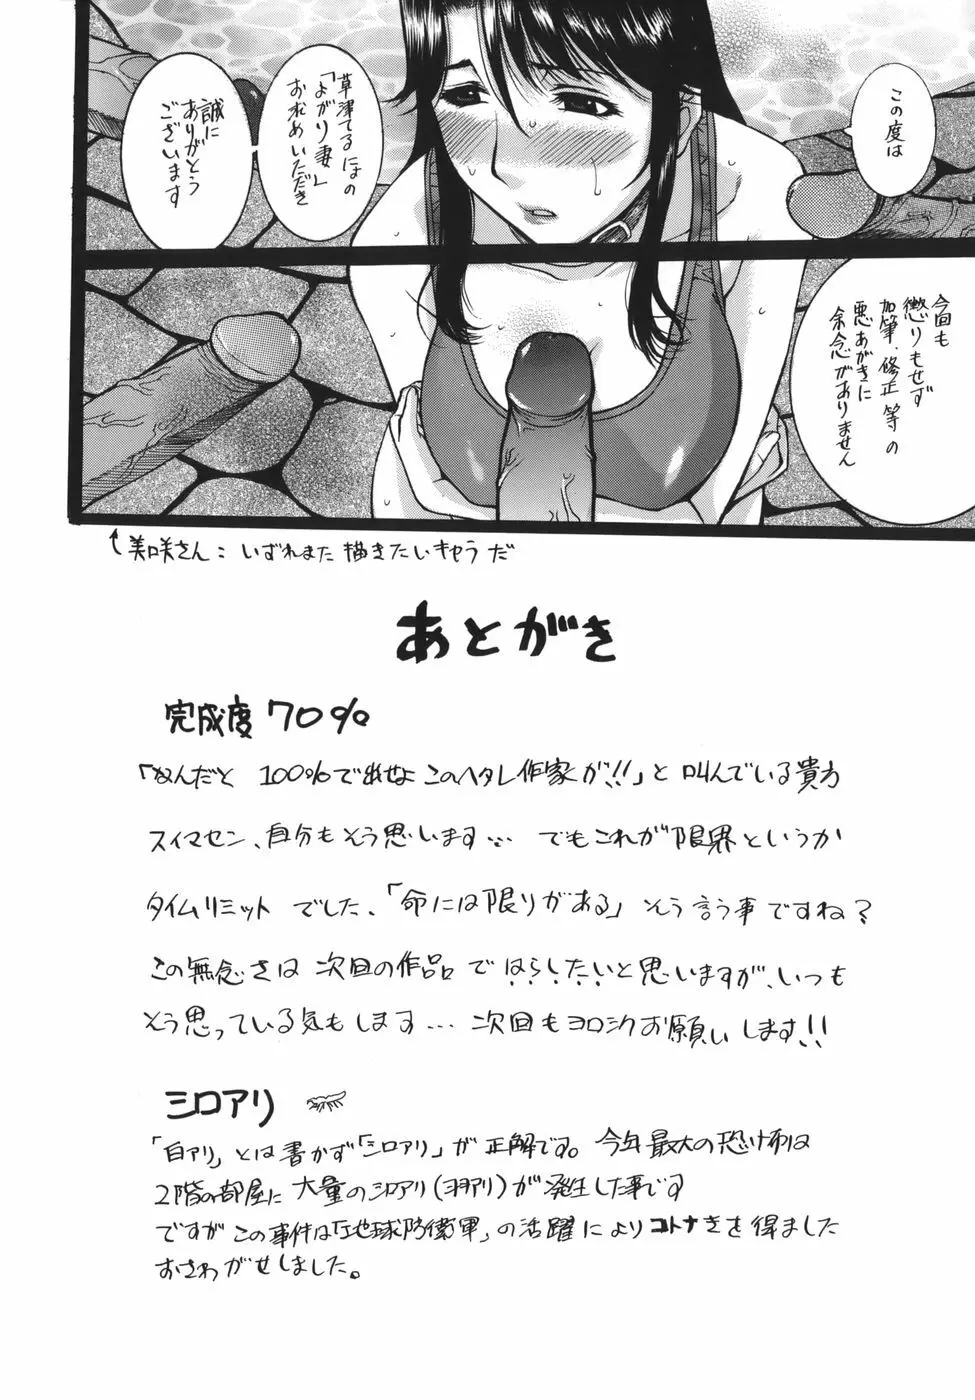 この度は
草津てるにょの
「よがり妻」
お求めいただき
誠に
ありがとう
ございます
今回も
懲りもせず
加筆、修正等の
悪あがきに
余念がありません
美咲さん:いずれまた描きたいキャラだ
あとがき
完成度70%
「なんだと 100%で出せよこのヘタレ作家が!!」と叫んでいる貴方
スイマセン、自分もそう思います… でもこれが限界というか
タイムリミットでした、「命には限りがある」そう言う事ですね?
この無念さは次回の作品ではらしたいと思いますが、いつも
そう思っている気もします…次回もヨロシクお願いします!!
シロアリ
「白アリ」とは書かず「シロアリ」が正解です。今年最大の恐怖は
2階の部屋に大量のシロアリ(ヨヨアリ)が発生した事です
ですがこの事件は「地球防衛軍」の活躍によりコトナきを得ました
おさわがせしました。